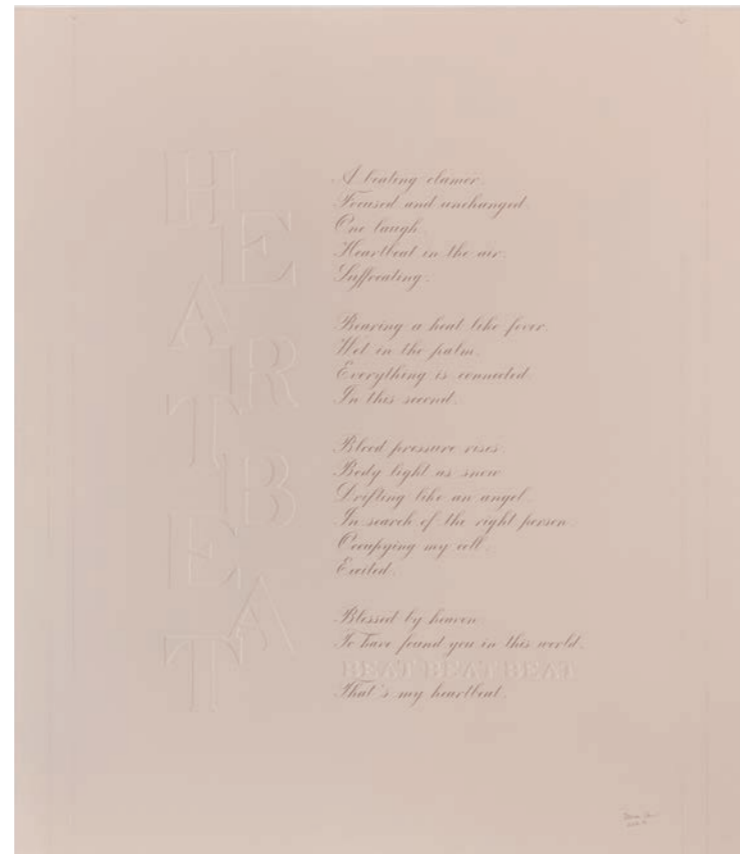 HEARTBEAT
A beating clamor.
Focused and unchanged.
One laugh.
Heartbeat in the air.
Suffocating.
Bearing a heat like fever.
Wet in the palm.
Everything is connected
In this second.
Blood pressure rises.
Body light as snow
Drifting like an angel.
In search of the right person.
Occupying my cell.
Excited.
Blessed by heaven
To have found you in this world.
BEAT BEAT BEAT
That's my heartbeat.